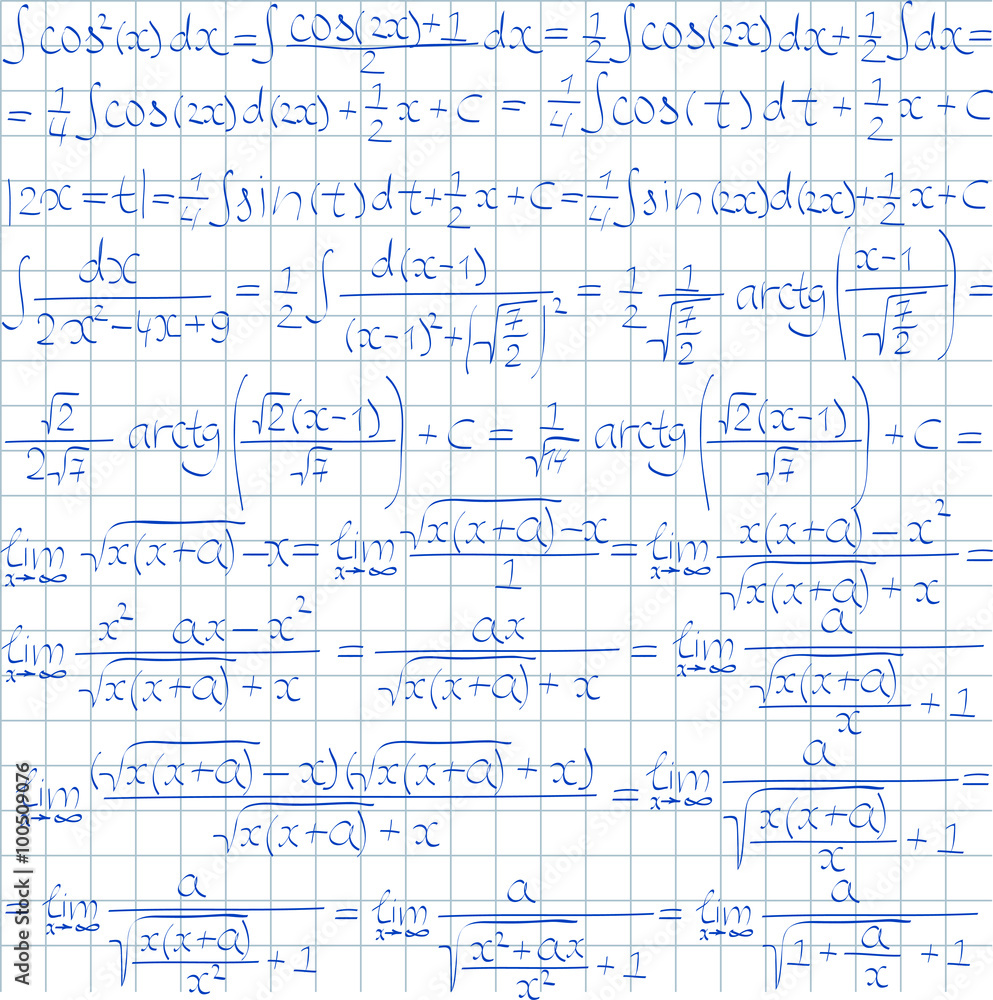 ∫cos²(x)dx=∫(cos(2x)+1)/2 dx=1/2∫cos(2x)dx+1/2∫dx=
=1/4∫cos(2x)d(2x)+1/2x+C = 1/4∫cos(t)dt+1/2x+C
|2x=t|=1/4∫sin(t)dt+1/2x+C=1/4∫sin(2x)d(2x)+1/2x+C
∫dx/(2x²-4x+9) = 1/2∫d(x-1)/((x-1)²+|√(7/2)|²) = 1/2 1/√(7/2) arctg((x-1)/√(7/2)) =
√2/(2√7) arctg(√2(x-1)/√7)+C = 1/√14 arctg(√2(x-1)/√7)+C =
lim x→∞ √(x(x+a))-x= lim x→∞ (√(x(x+a))-x)/1 = lim x→∞ (x(x+a)-x²)/(√(x(x+a))+x) =
lim x→∞ (x² ax-x²)/(√(x(x+a))+x) = ax/(√(x(x+a))+x) = lim x→∞ a/(√(x(x+a))/x+1)
lim x→∞ (√(x(x+a))-x)(√(x(x+a))+x)/(√(x(x+a))+x) = lim x→∞ a/(√(x(x+a)/x)+1) =
= lim x→∞ a/(√(x(x+a)/x²)+1) = lim x→∞ a/(√((x²+ax)/x²)+1) = lim x→∞ a/(√(1+a/x)+1)
Adobe Stock | #100509076